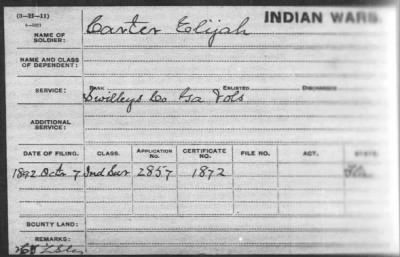 (3-25-11)
INDIAN WARS
NAME OF SOLDIER: Carter Elijah
NAME AND CLASS OF DEPENDENT:
SERVICE: RANK ENLISTED DISCHARGED
Swilleys Co Ga Vols
ADDITIONAL SERVICE:
DATE OF FILING. CLASS. APPLICATION No. CERTIFICATE No. FILE NO. ACT. STATE
1892 Octr 7 Ind Sur 2857 1872 Fla
BOUNTY LAND:
REMARKS: